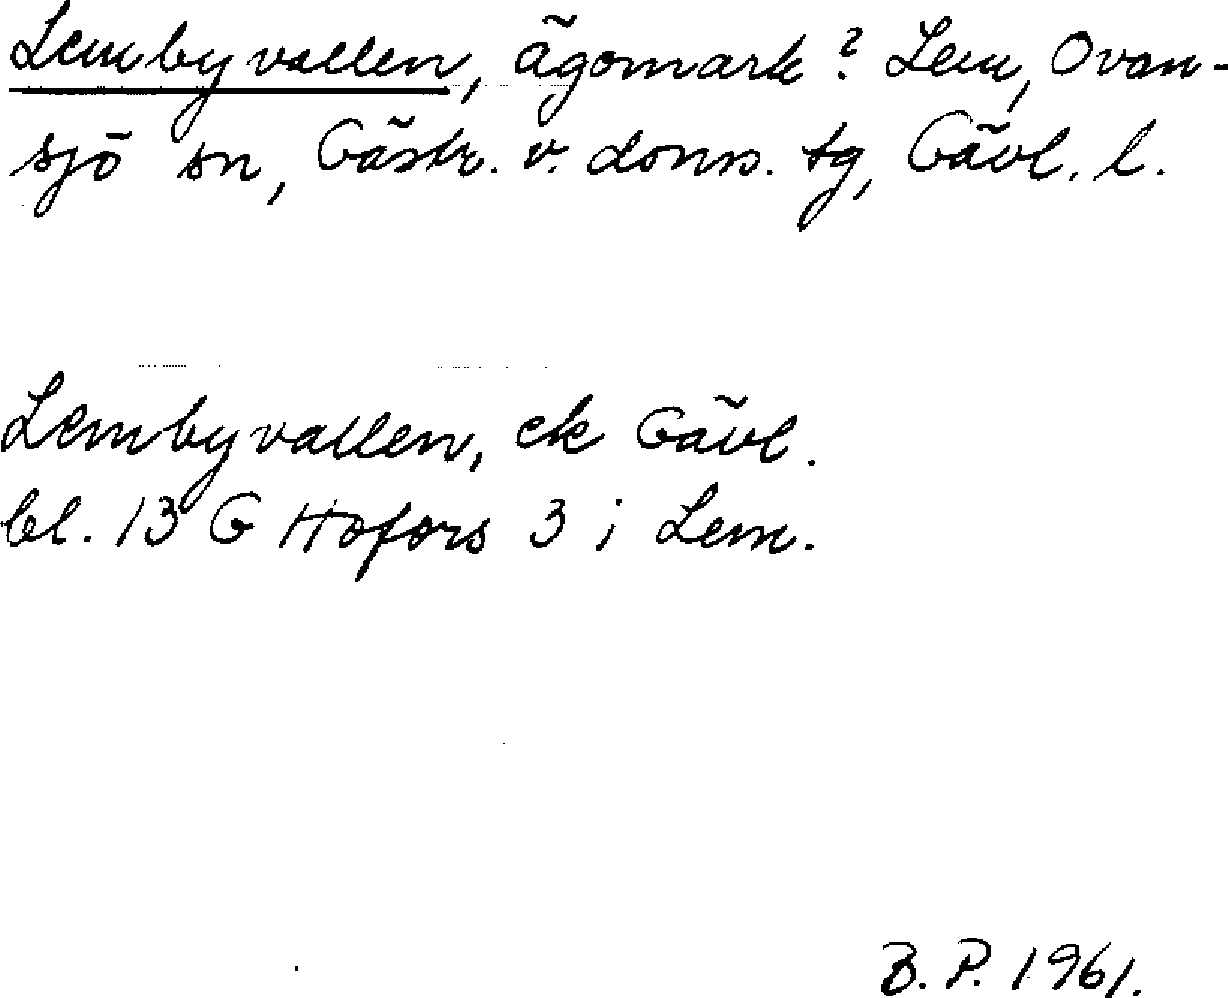 Lembyvallen, ägomark? Lem, Ovan-
sjö sn, Gästr. v. doms. tg, Gävl. l.
Lembyvallen, ek Gävl.
bl. 13 G Hofors 3 i Lem.
B. P. 1961.